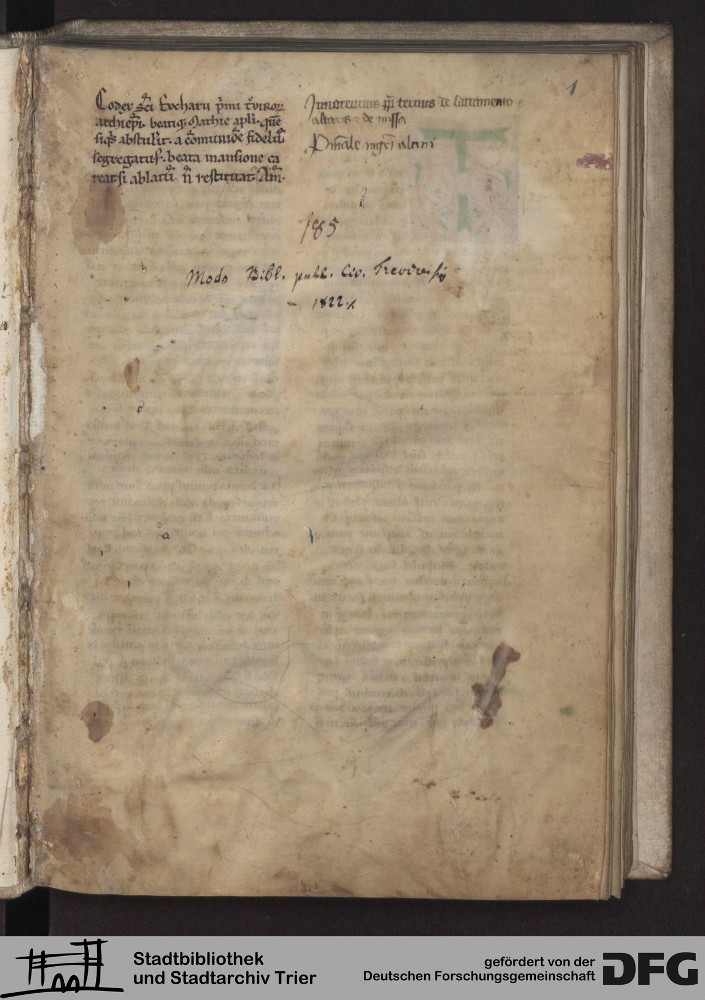 1
Codex sci Eucharii p̄mi t̄viroꝝ
archiep̄i. beatiq̨ Mathie apl̄i. quē
siq̄s abstulīt. a cōmunioē fideliū
segregatus. beata mansione ca
reat si ablatū n̄ restituat. Am̄.
Innocencius pp̄ tercius de sacramento
altaris ⁊ de missa
185
Modo Bibl. publ. Civ. Trevirensis
– 1822.
Stadtbibliothek
und Stadtarchiv Trier
gefördert von der
Deutschen Forschungsgemeinschaft
DFG